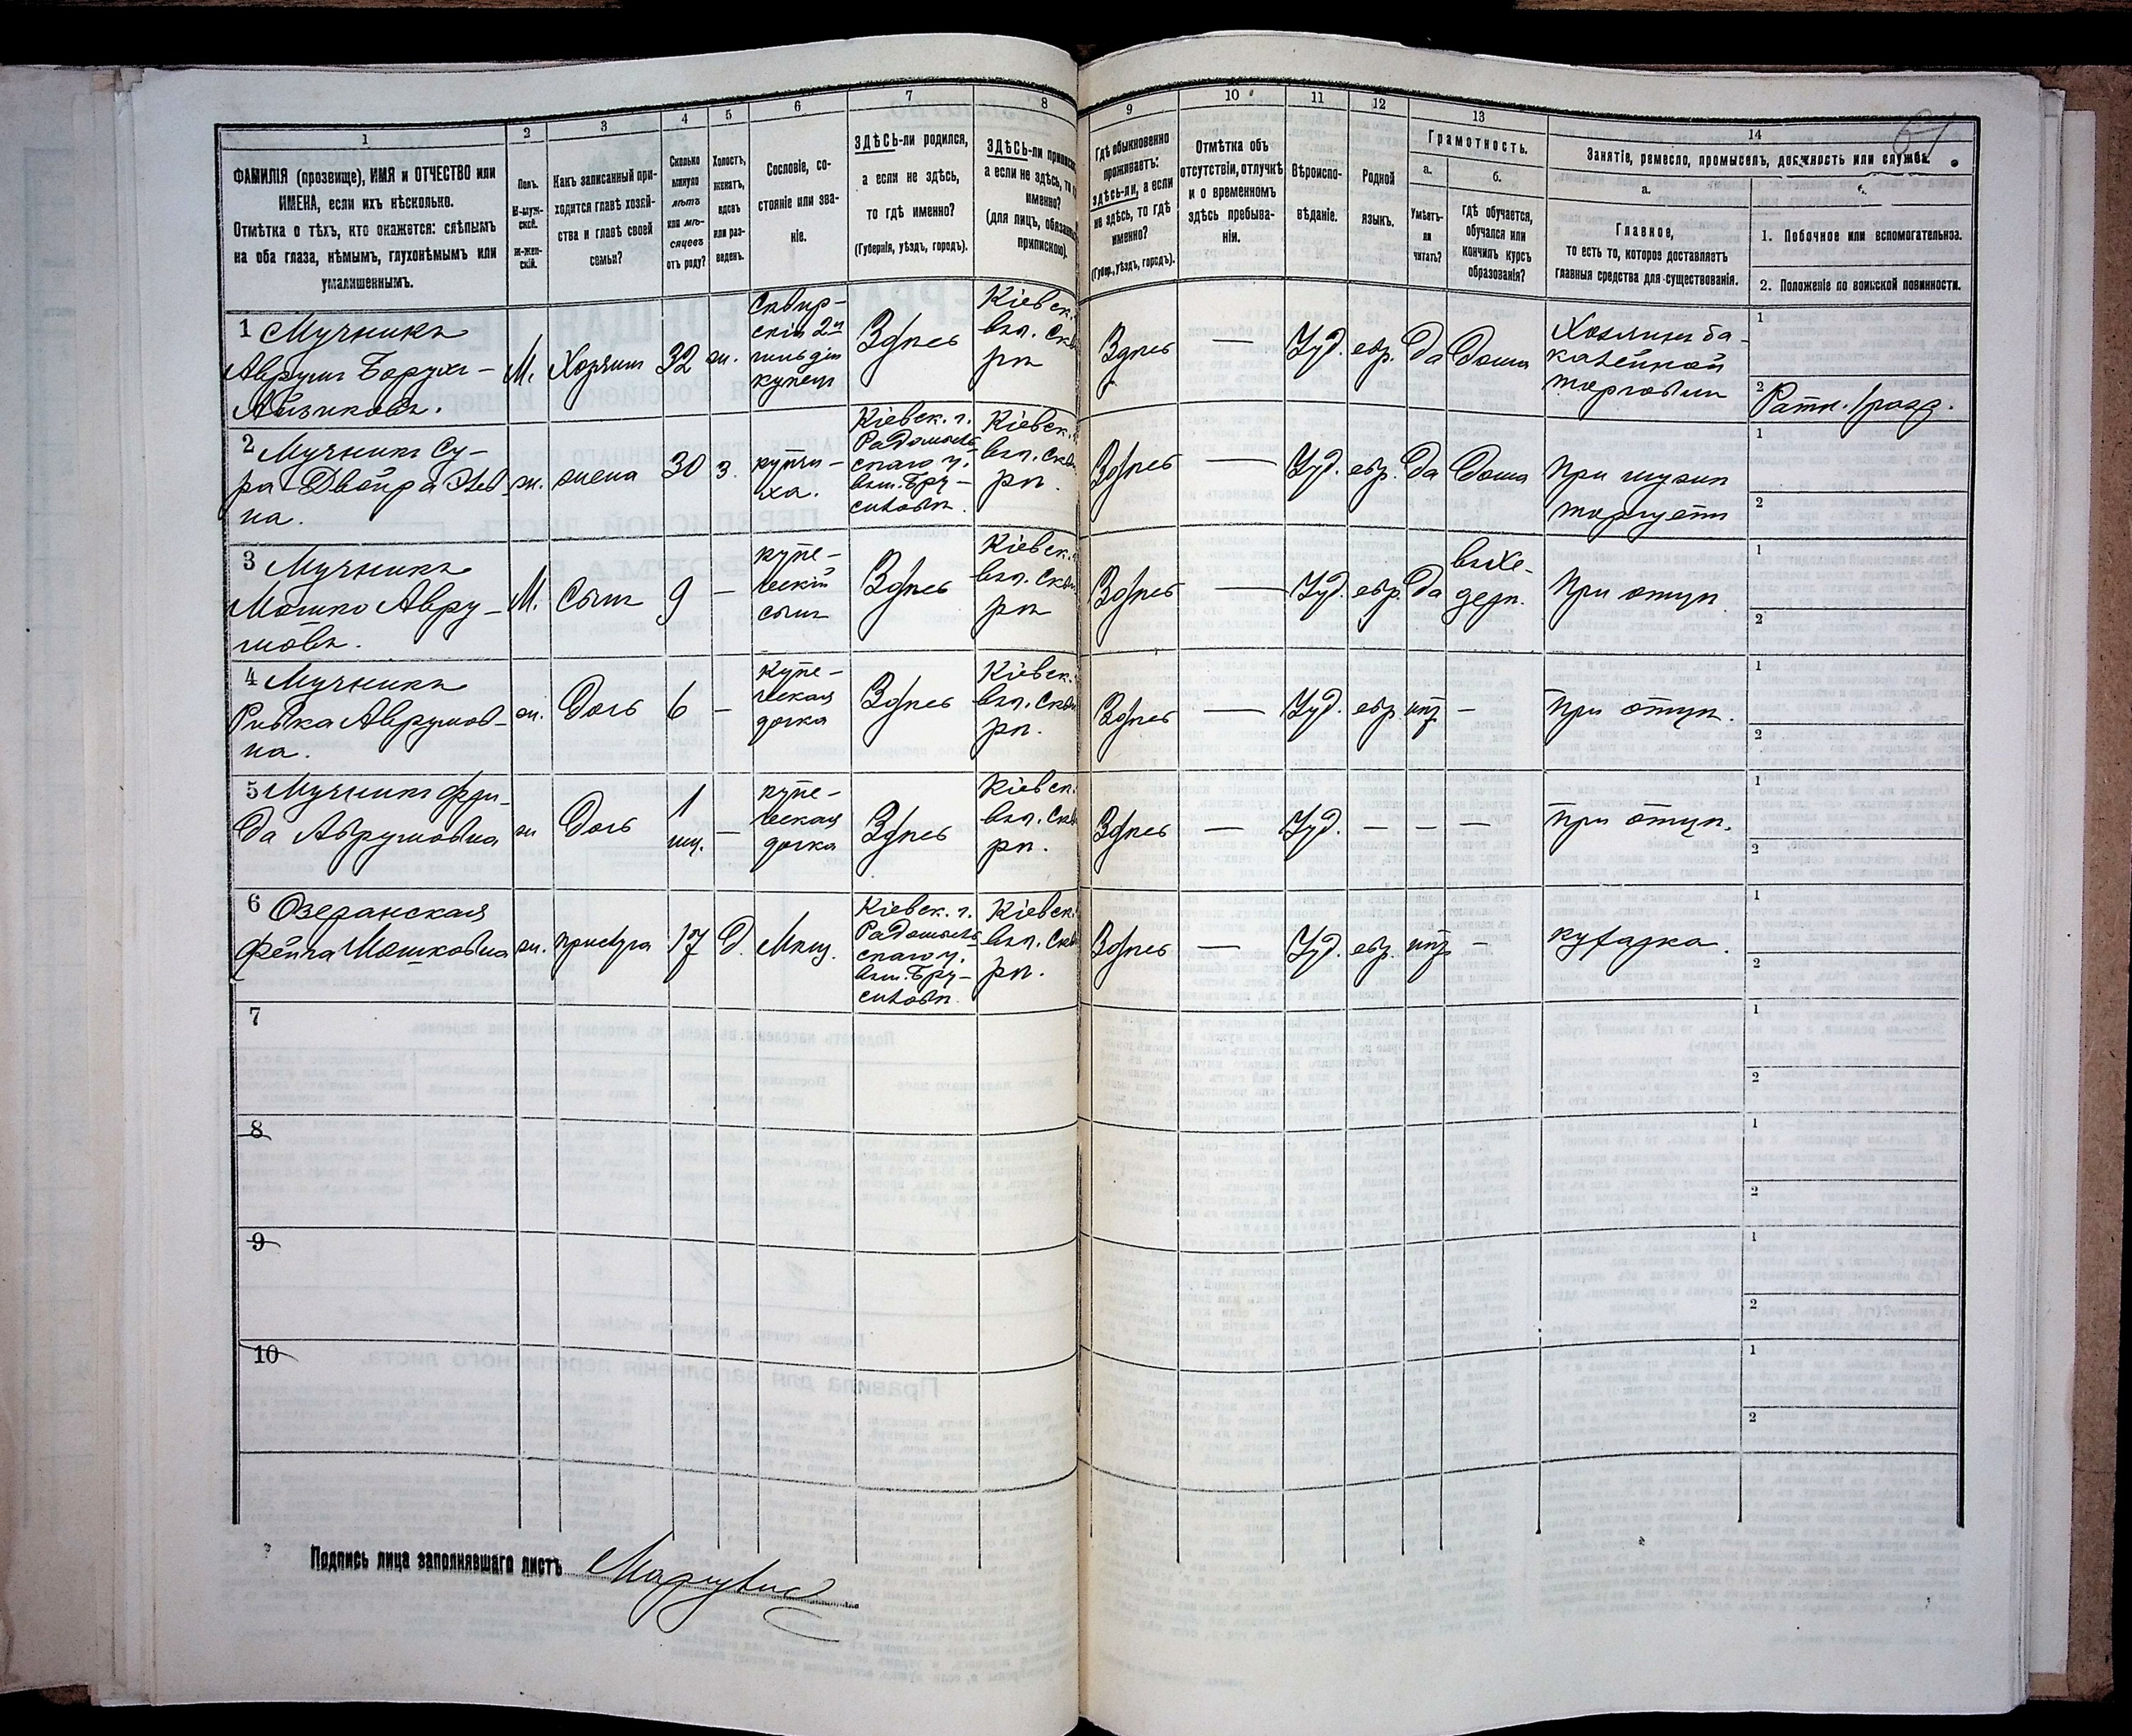 1
ФАМИЛІЯ (прозвище), ИМЯ и ОТЧЕСТВО или
ИМЕНА, если ихъ нѣсколько.
Отмѣтка о тѣхъ, кто окажется: слѣпымъ
на оба глаза, нѣмымъ, глухонѣмымъ или
умалишеннымъ.
2
Полъ.
М-муж-
ской.
Ж-жен-
скій.
3
Какъ записанный при-
ходится главѣ хозяй-
ства и главѣ своей
семьи?
4
Сколько
минуло
лѣтъ
или мѣ-
сяцевъ
отъ роду?
5
Холостъ,
женатъ,
вдовъ
или раз-
веденъ.
6
Сословіе, со-
стояніе или зва-
ніе.
7
ЗДѢСЬ-ли родился,
а если не здѣсь,
то гдѣ именно?
(Губернія, уѣздъ, городъ).
8
ЗДѢСЬ-ли
а если не здѣсь, то
именно?
(для лицъ,
припискою).
9
Гдѣ обыкновенно
проживаетъ:
здѣсь-ли, а если
не здѣсь, то гдѣ
именно?
(Губер., уѣздъ, городъ).
10
Отмѣтка объ
отсутствіи, отлучкѣ
и о временномъ
здѣсь пребыва-
ніи.
11
Вѣроиспо-
вѣданіе.
12
Родной
языкъ.
13
Грамотность.
а.
Умѣетъ-
ли
читать?
б.
гдѣ обучается,
обучался или
кончилъ курсъ
образованія?
14
61
Занятіе, ремесло, промыселъ, должность или служба.
а.
Главное,
то есть то, которое доставляетъ
главныя средства для существованія.
1. Побочное или вспомогательное.
2. Положеніе по воинской повинности.
1 Мучникъ
Аврумъ Борухъ-
Айзиковъ.
М.
Хозяинъ
32
ж.
Сквир-
скій 2й
гильдіи
купецъ
Здѣсь
Кіевск.
Здѣсь
—
Іуд.
евр.
Да
Дома
Хозяинъ ба-
калейной
торговли
1
2 Ратн. 1 разр.
2 Мучникъ Су-
ра-Двойра
на.
ж.
жена
30
з.
купчи-
ха.
Кіевск. г.
Радомысль-
скаго у.
Бру-
силовѣ.
Кіевск.
Здѣсь
—
Іуд.
евр.
Да
Дома
При мужѣ
торгуетъ
1
2
3 Мучникъ
Мошко Авру-
мовъ.
М.
Сынъ
9
—
купе-
ческій
сынъ
Здѣсь
Кіевск.
Здѣсь
—
Іуд.
евр.
Да
въ хе-
дерѣ.
При отцѣ
1
2
4 Мучникъ
Ривка Аврумов-
на.
ж.
Дочь
6
—
купе-
ческая
дочка
Здѣсь
Кіевск.
Здѣсь
—
Іуд.
евр.
нѣт
—
При отцѣ.
1
2
5 Мучникъ Фри-
да Аврумовна
ж
Дочь
1
мц.
—
купе-
ческая
дочка
Здѣсь
Кіевск.
Здѣсь
—
Іуд.
—
—
—
При отцѣ.
1
2
6 Озерянская
Фейга Мошковна
ж.
прислуга
17
Д.
Мѣщ.
Кіевск. г.
Радомысль-
скаго у.
Бру-
силовѣ.
Кіевск.
Здѣсь
—
Іуд.
евр.
нѣт
—
кухарка.
1
2
7
1
2
8
1
2
9
1
2
10
1
2
Подпись лица заполнявшаго листъ